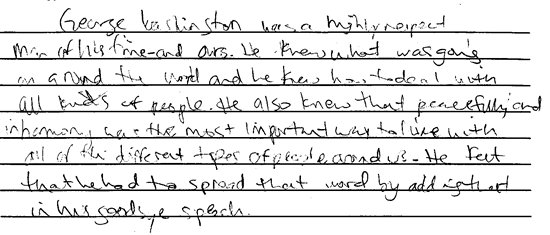 George Washington was a highly respect
man of his time-and ours. He knew what was going
on around the world and he knew how to deal with
all kinds of people. He also knew that peacefully, and
in harmony was the most important way to live with
all of the different types of people around us. He felt
that he had to spread that word by add right at
in his goodbye speech.